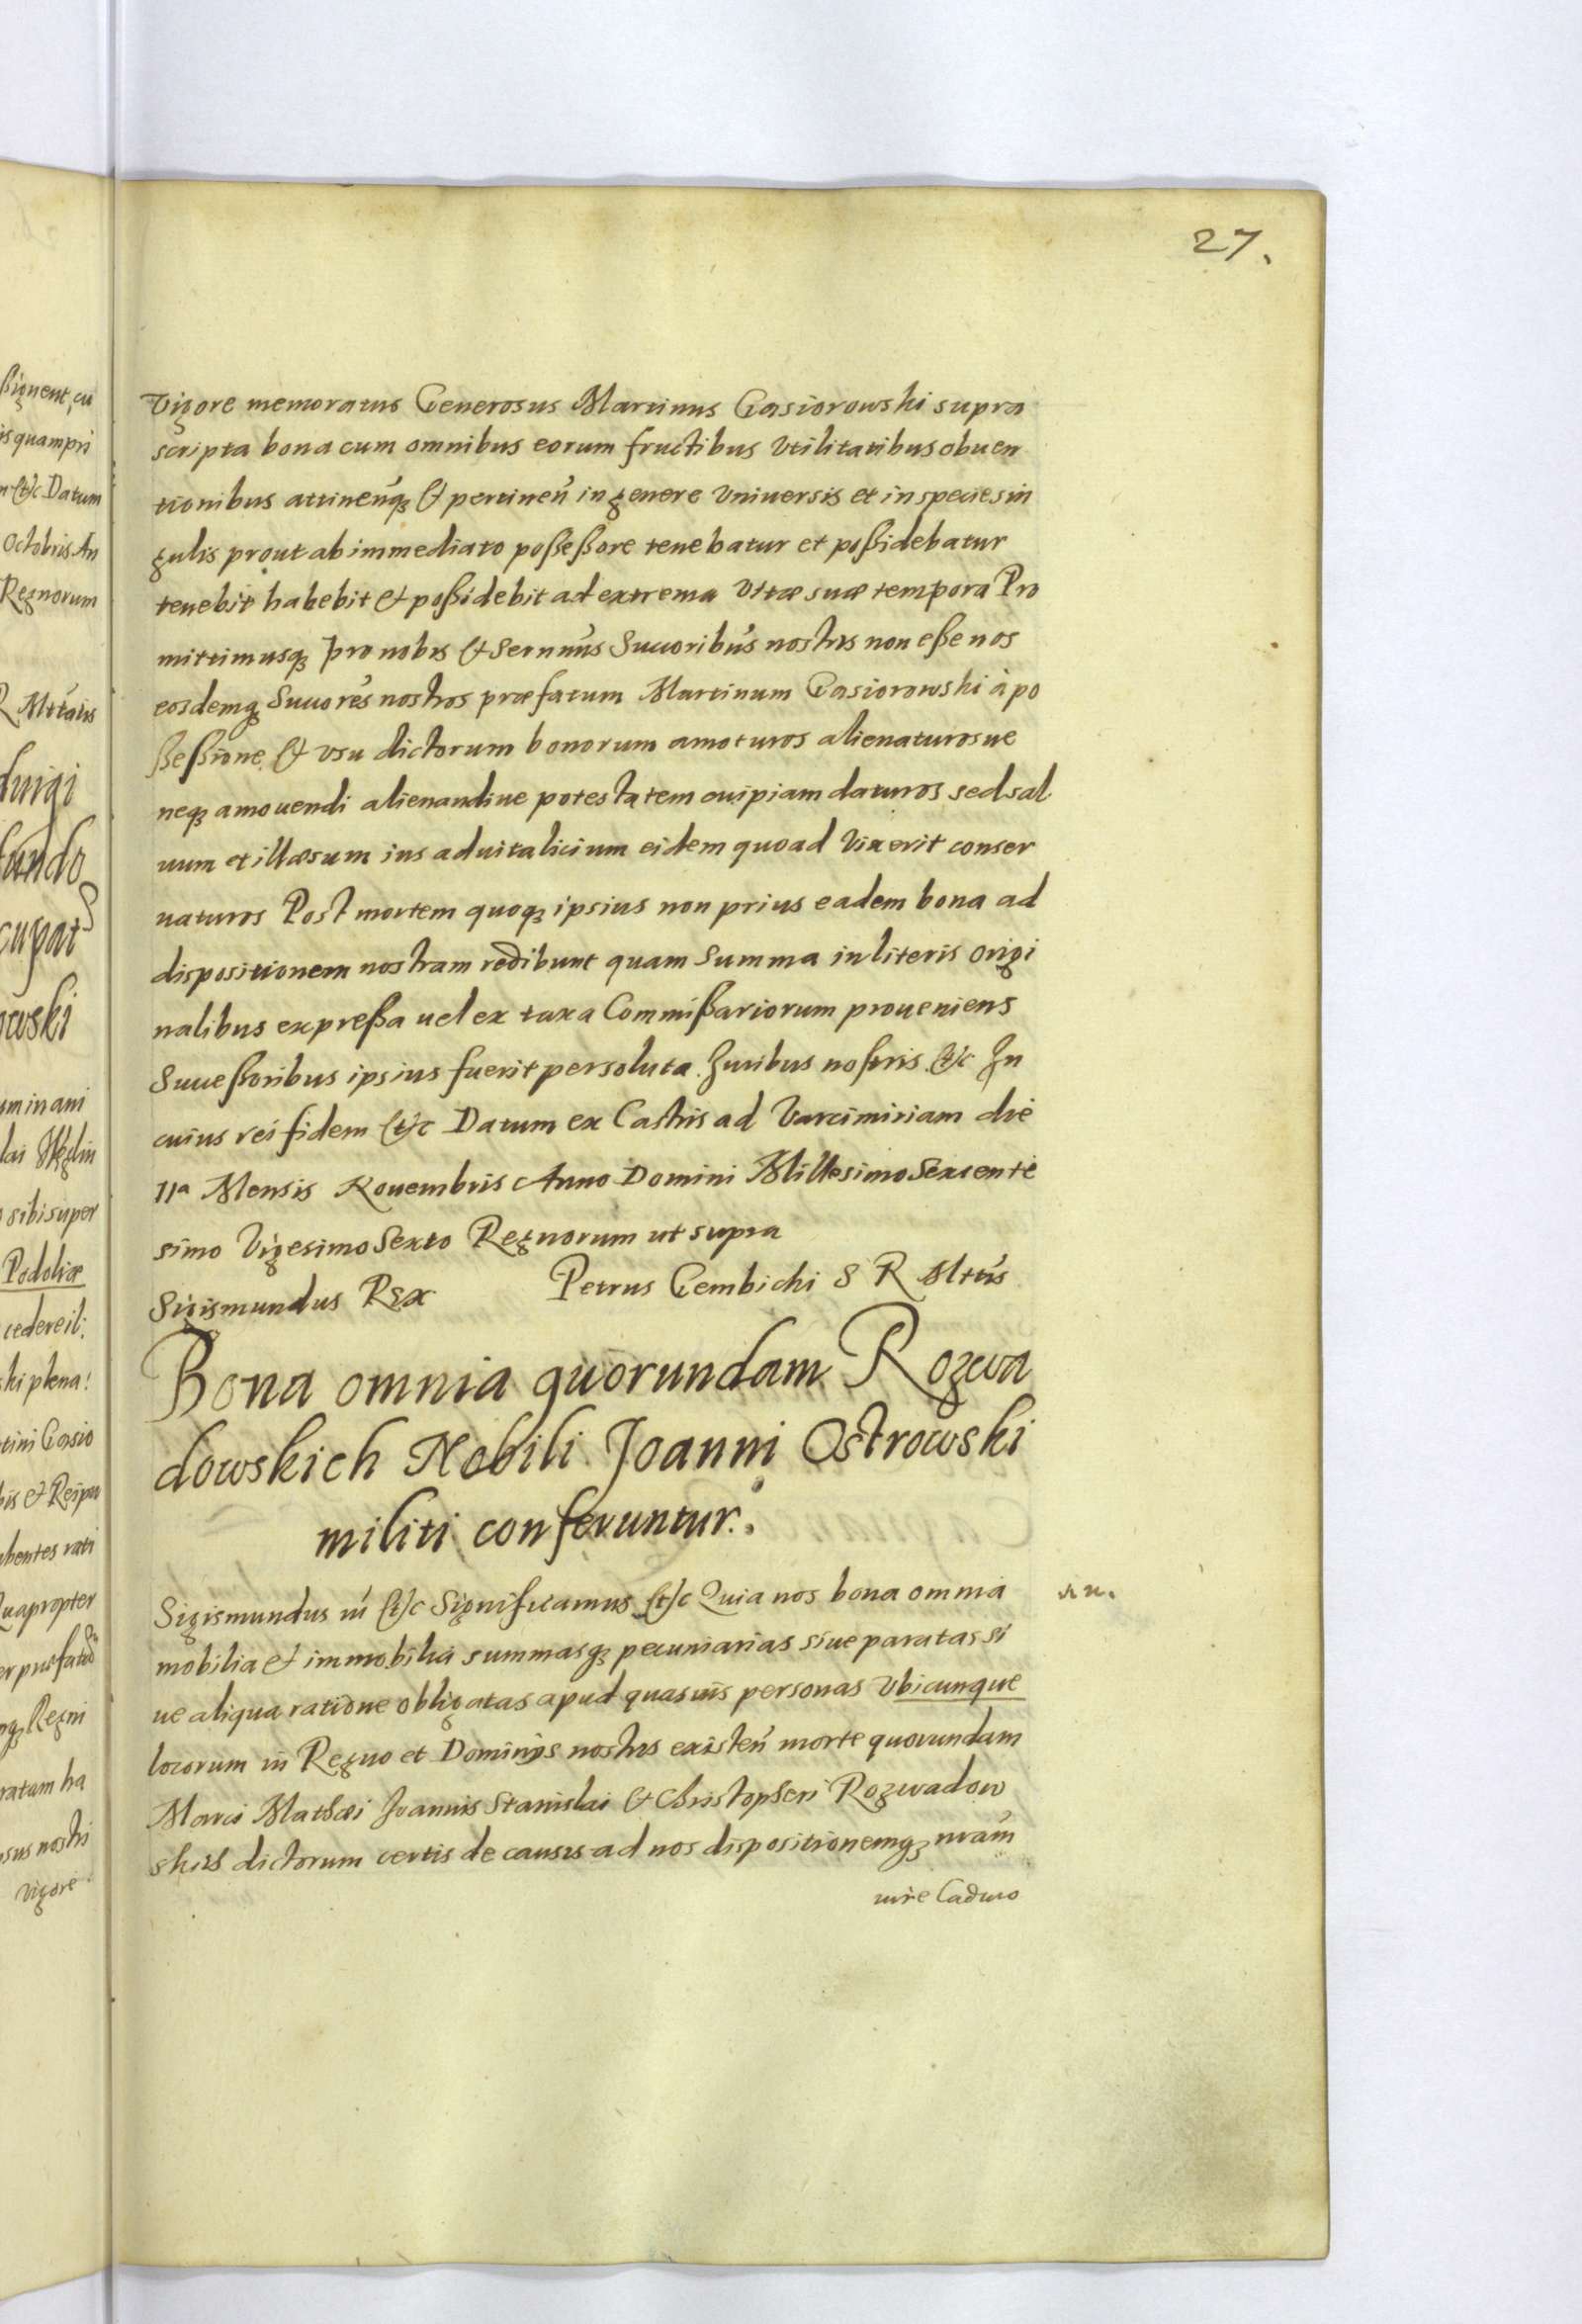 27.
Vigore memoratus Generosus Martinus Gasiorowski supra
scripta bona cum omnibus eorum fructibus Vtilitatibus obuen
tionibus attineñ̃qȝ & pertineñ in genere Vniuersis et in specie sin
gulis prout ab immediato poßeßore tenebatur et poßidebatur
tenebit habebit & poßidebit ad extrema Vitæ suæ tempora Pro
mittimusqȝ pro nobis & Sernñis Succoribus nostris non eße nos
eosdemqȝ Succores nostros præfatum Martinum Gasiorowski à po
ßeßione & vsu dictorum bonorum amoturos alienaturosue
neqȝ amouendi alienandiue potestatem cuipiam daturos sed sal
uum et illæsum ius aduitalicium eidem quoad Vixerit conser
uaturos Post mortem quoqȝ ipsius non prius eadem bona ad
dispositionem nostram redibunt quam Summa in literis origi
nalibus expreßa uel ex taxa Commißariorum proueniens
Succeßoribus ipsius fuerit persoluta. Juribus nostris &c In
cuius rei fidem &c Datum ex Castris ad Varcimiriam die
11a Mensis Nouembris Anno Domini Millesimo Sexcente
simo Vigesimo Sexto Regnorum ut supra
Sigismundus Rex Petrus Gembichi S R Mttis
Bona omnia quorundam Rozwa
dowskich Nobili Joanni Ostrowski
militi conferuntur.
Sigismundus iii &c Significamus &c Quia nos bona omnia
mobilia & immobilia summasqȝ pecuniarias siue paratas si
ue aliqua ratione obligatas apud quasuis personas Vbicunque
locorum in Regno et Dominijs nostris existeñ morte quorundam
Marci Mathæi Joannis Stanislai & Christopheri Rozwadow
skich dictorum certis de causis ad nos dispositionemqȝ nrãm
iure Caduco